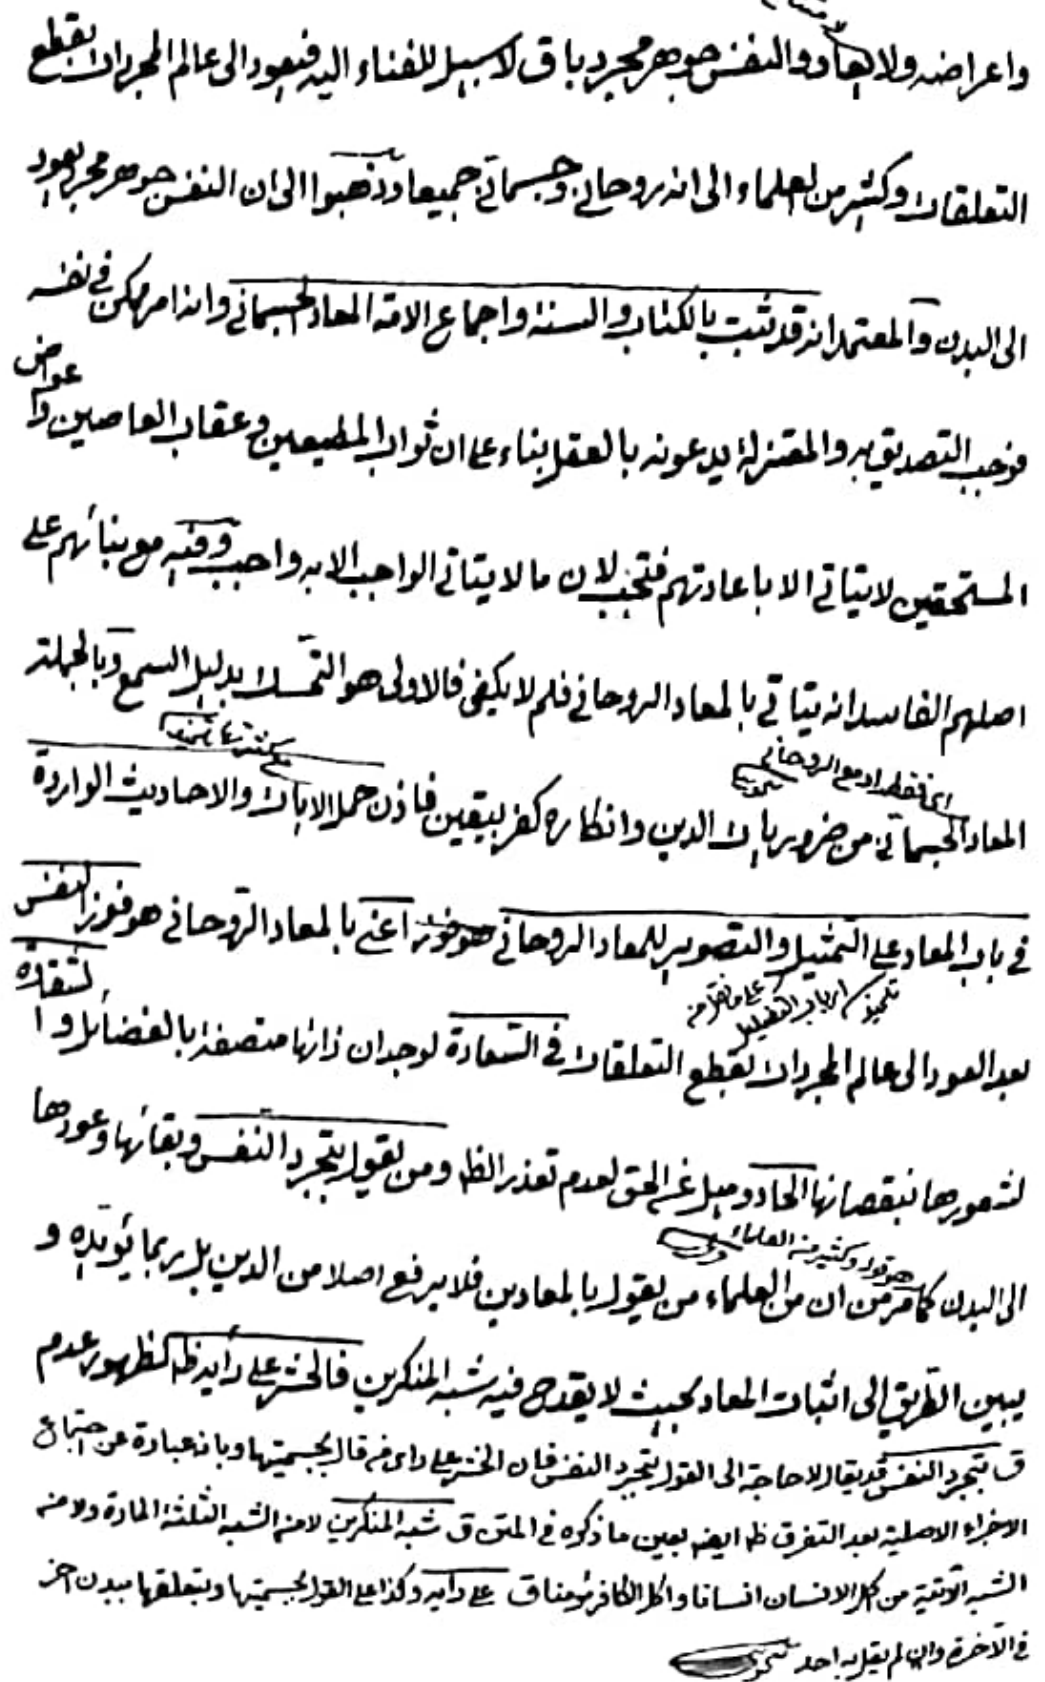 واعراضه ولا يعاد والنفس جوهر مجرد باق لا سبيل للفناء اليه فيعود الى عالم المجردات بقطع
التعلقات وكثير من العلماء الى انه روحاني وجسماني جميعا وذهبوا الى ان النفس جوهر مجرد يعود
الى البدن والمعتمد انه قد ثبت بالكتاب والسنة واجماع الامة المعاد الجسماني وانه امر ممكن في نفسه
فوجب التصديق به والمعتزلة يدعونه بالعقل بناء على ان ثواب المطيعين وعقاب العاصين وا
عواض
المستحقين لا يتاتي الا باعادتهم فتجب لان ما لا يتاتي الواجب الا به واجب وفيه مع بنائهم على
اصلهم الفاسد انه يتاتي بالمعاد الروحاني فلم لا يكفي فالاولى هو التمسك بدليل السمع وبالجملة
اي فقط او مع الروحاني
المعاد الجسماني من ضروريات الدين وانكاره كفر بيقين فاذن حمل الايات والاحاديث الواردة
في باب المعاد على التمثيل والتصوير للمعاد الروحاني هو فوز اعني بالمعاد الروحاني هو فوز النفس
ارباب التفضيل على ما نقل منه
بعد العود الى عالم المجردات بقطع التعلقات في السعادة لوجدان ذاتها متصفة بالفضائل وا
لشقاوة
لشعورها بنقصانها الحاد وميل عن الحق لعدم تعذر الظ ومن يقول بتجرد النفس وبقائها وعودها
هو قوله وكثير من العلماء
الى البدن كما مر من ان من العلماء من يقول بالمعادين فلا يرفع اصلا من الدين بل ربما يؤيده و
يبين الطريق الى اثبات المعاد بحيث لا يقدح فيه شبه المنكرين فالحشر على رأيه ظ لظهور عدم
ق بتجرد النفس قد يقال لا حاجة الى القول بتجرد النفس فان الحشر على راى من قال بجسميتها وبانه عبارة عن اجتماع
الاجزاء الاصلية بعد التفرق ظ ايضه بعين ما ذكوه في المتن ق شبه المنكرين لا من الشبه الثلثة المادة ولا من
الشبه الآتية من اكل الانسان انسانا واكل الكافر مؤمنا ق على رايه وكذا على القول بجسميتها وبتعلقها ببدن اخر
في الآخرة وان لم يقل به احد